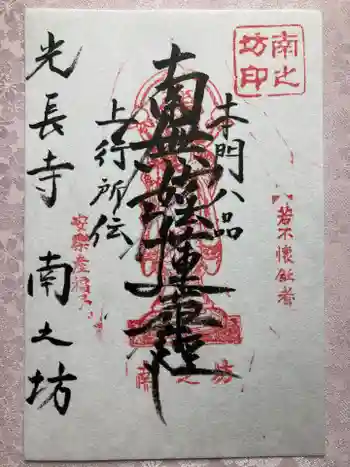 南之
坊印
若不懐鈍者
本門八品
南無妙法蓮華経
上行所伝
安樂産福子
南之坊
光長寺 南之坊